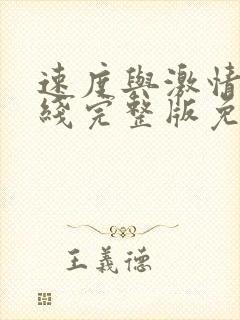 速度與激情
綫完整版免
王義德